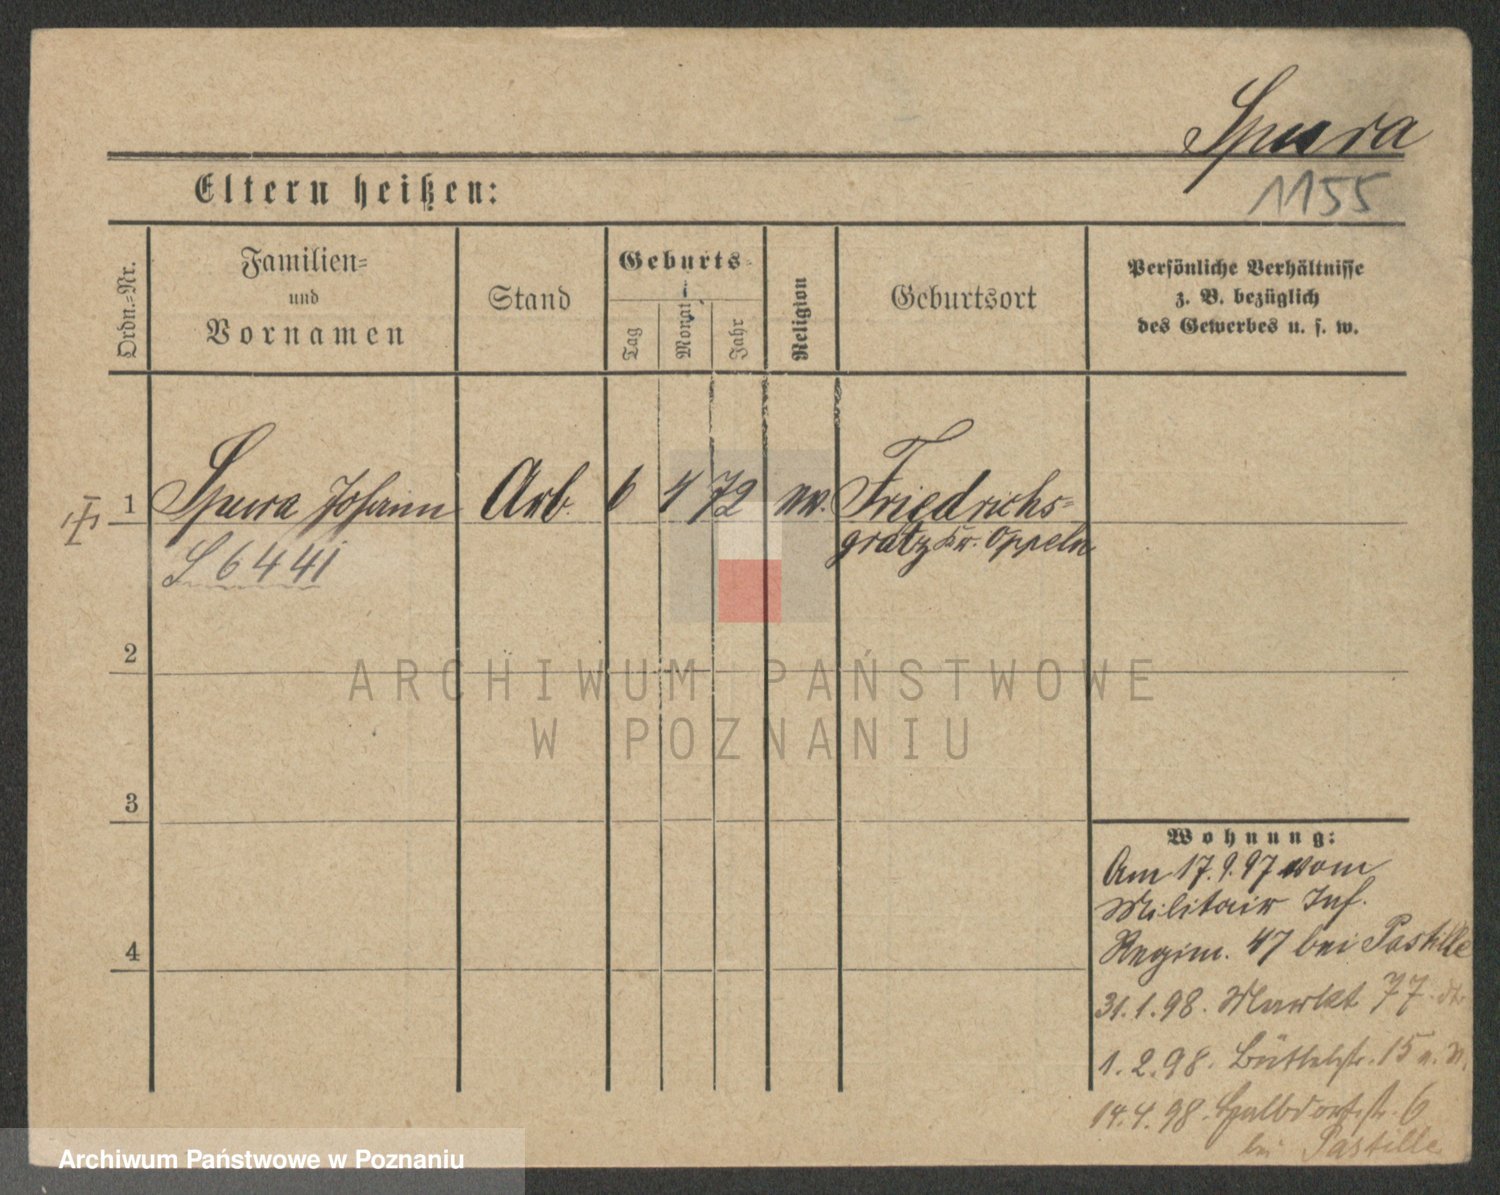 Spura
1155
Eltern heißen:
Ordn.-Nr.
Familien-
und
Vornamen
Stand
Geburts-
Tag
Monat
Jahr
Religion
Geburtsort
Persönliche Verhältnisse
z. B. bezüglich
des Gewerbes u. s. w.
1 Spura Johann Arb. 6 4 72 Friedrichs-
grätz Kr. Oppeln
S 6441
2
ARCHIWUM PAŃSTWOWE
W POZNANIU
3
Wohnung:
Am 17.9.97 vom
Militair Inf.
4
Regim. 47 bei Pastille
31.1.98. Markt 77
1.2.98. Büttelstr. 15
14.4.98. 6
bei Pastille
Archiwum Państwowe w Poznaniu